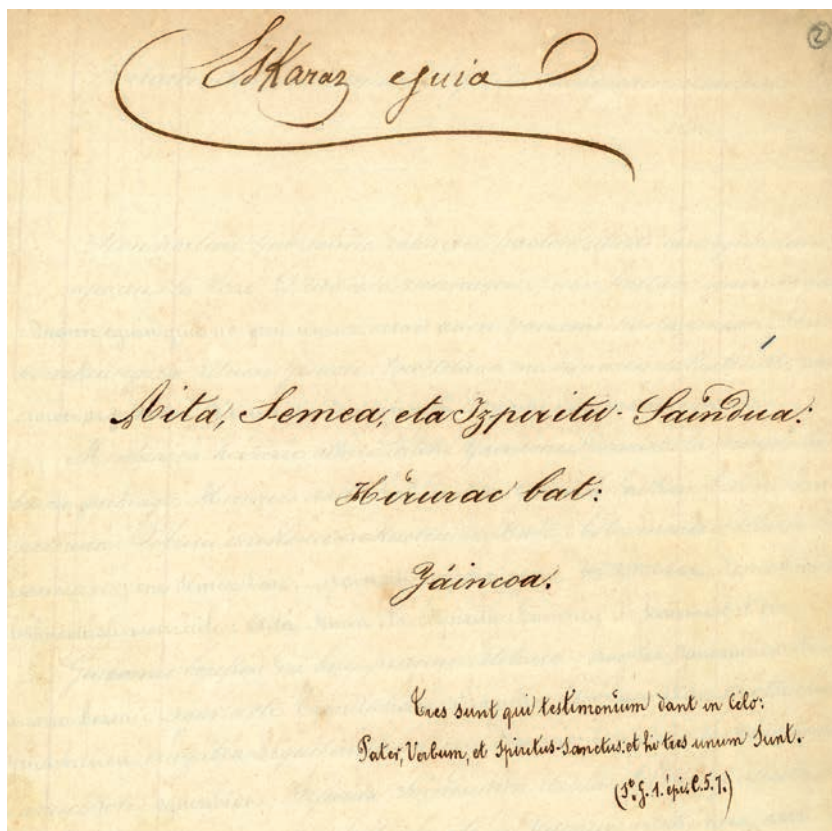 2
Eskaraz eguia
Aita, Semea, eta Izpiritu-Saindua:
Hirurac bat:
Jáincoa.
Tres sunt qui testimonium dant in Celo:
Pater, Verbum, et Spiritus-Sanctus: et hi tres unum Sunt.
(Sº. J. 1. épis. C. 5. 7.)